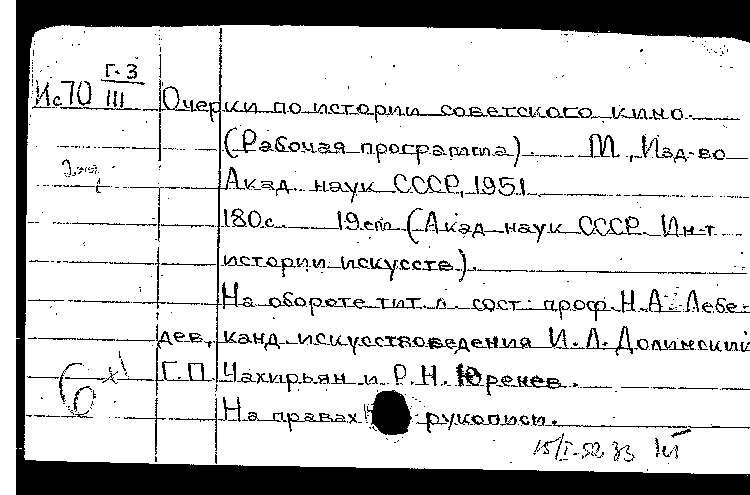 Г-3
Ис70 III Очерки по истории советского кино.
(Рабочая программа). М., Изд-во
Акад. наук СССР, 1951.
180с. 19см (Акад наук СССР. Ин-т
истории искусств).
На обороте тит. л. сост: проф. Н.А. Лебе-
дев, канд. искусствоведения И.Л. Долинский
Г.П. Чахирьян и Р.Н. Юренев.
6
На правах рукописи.
15/I-52